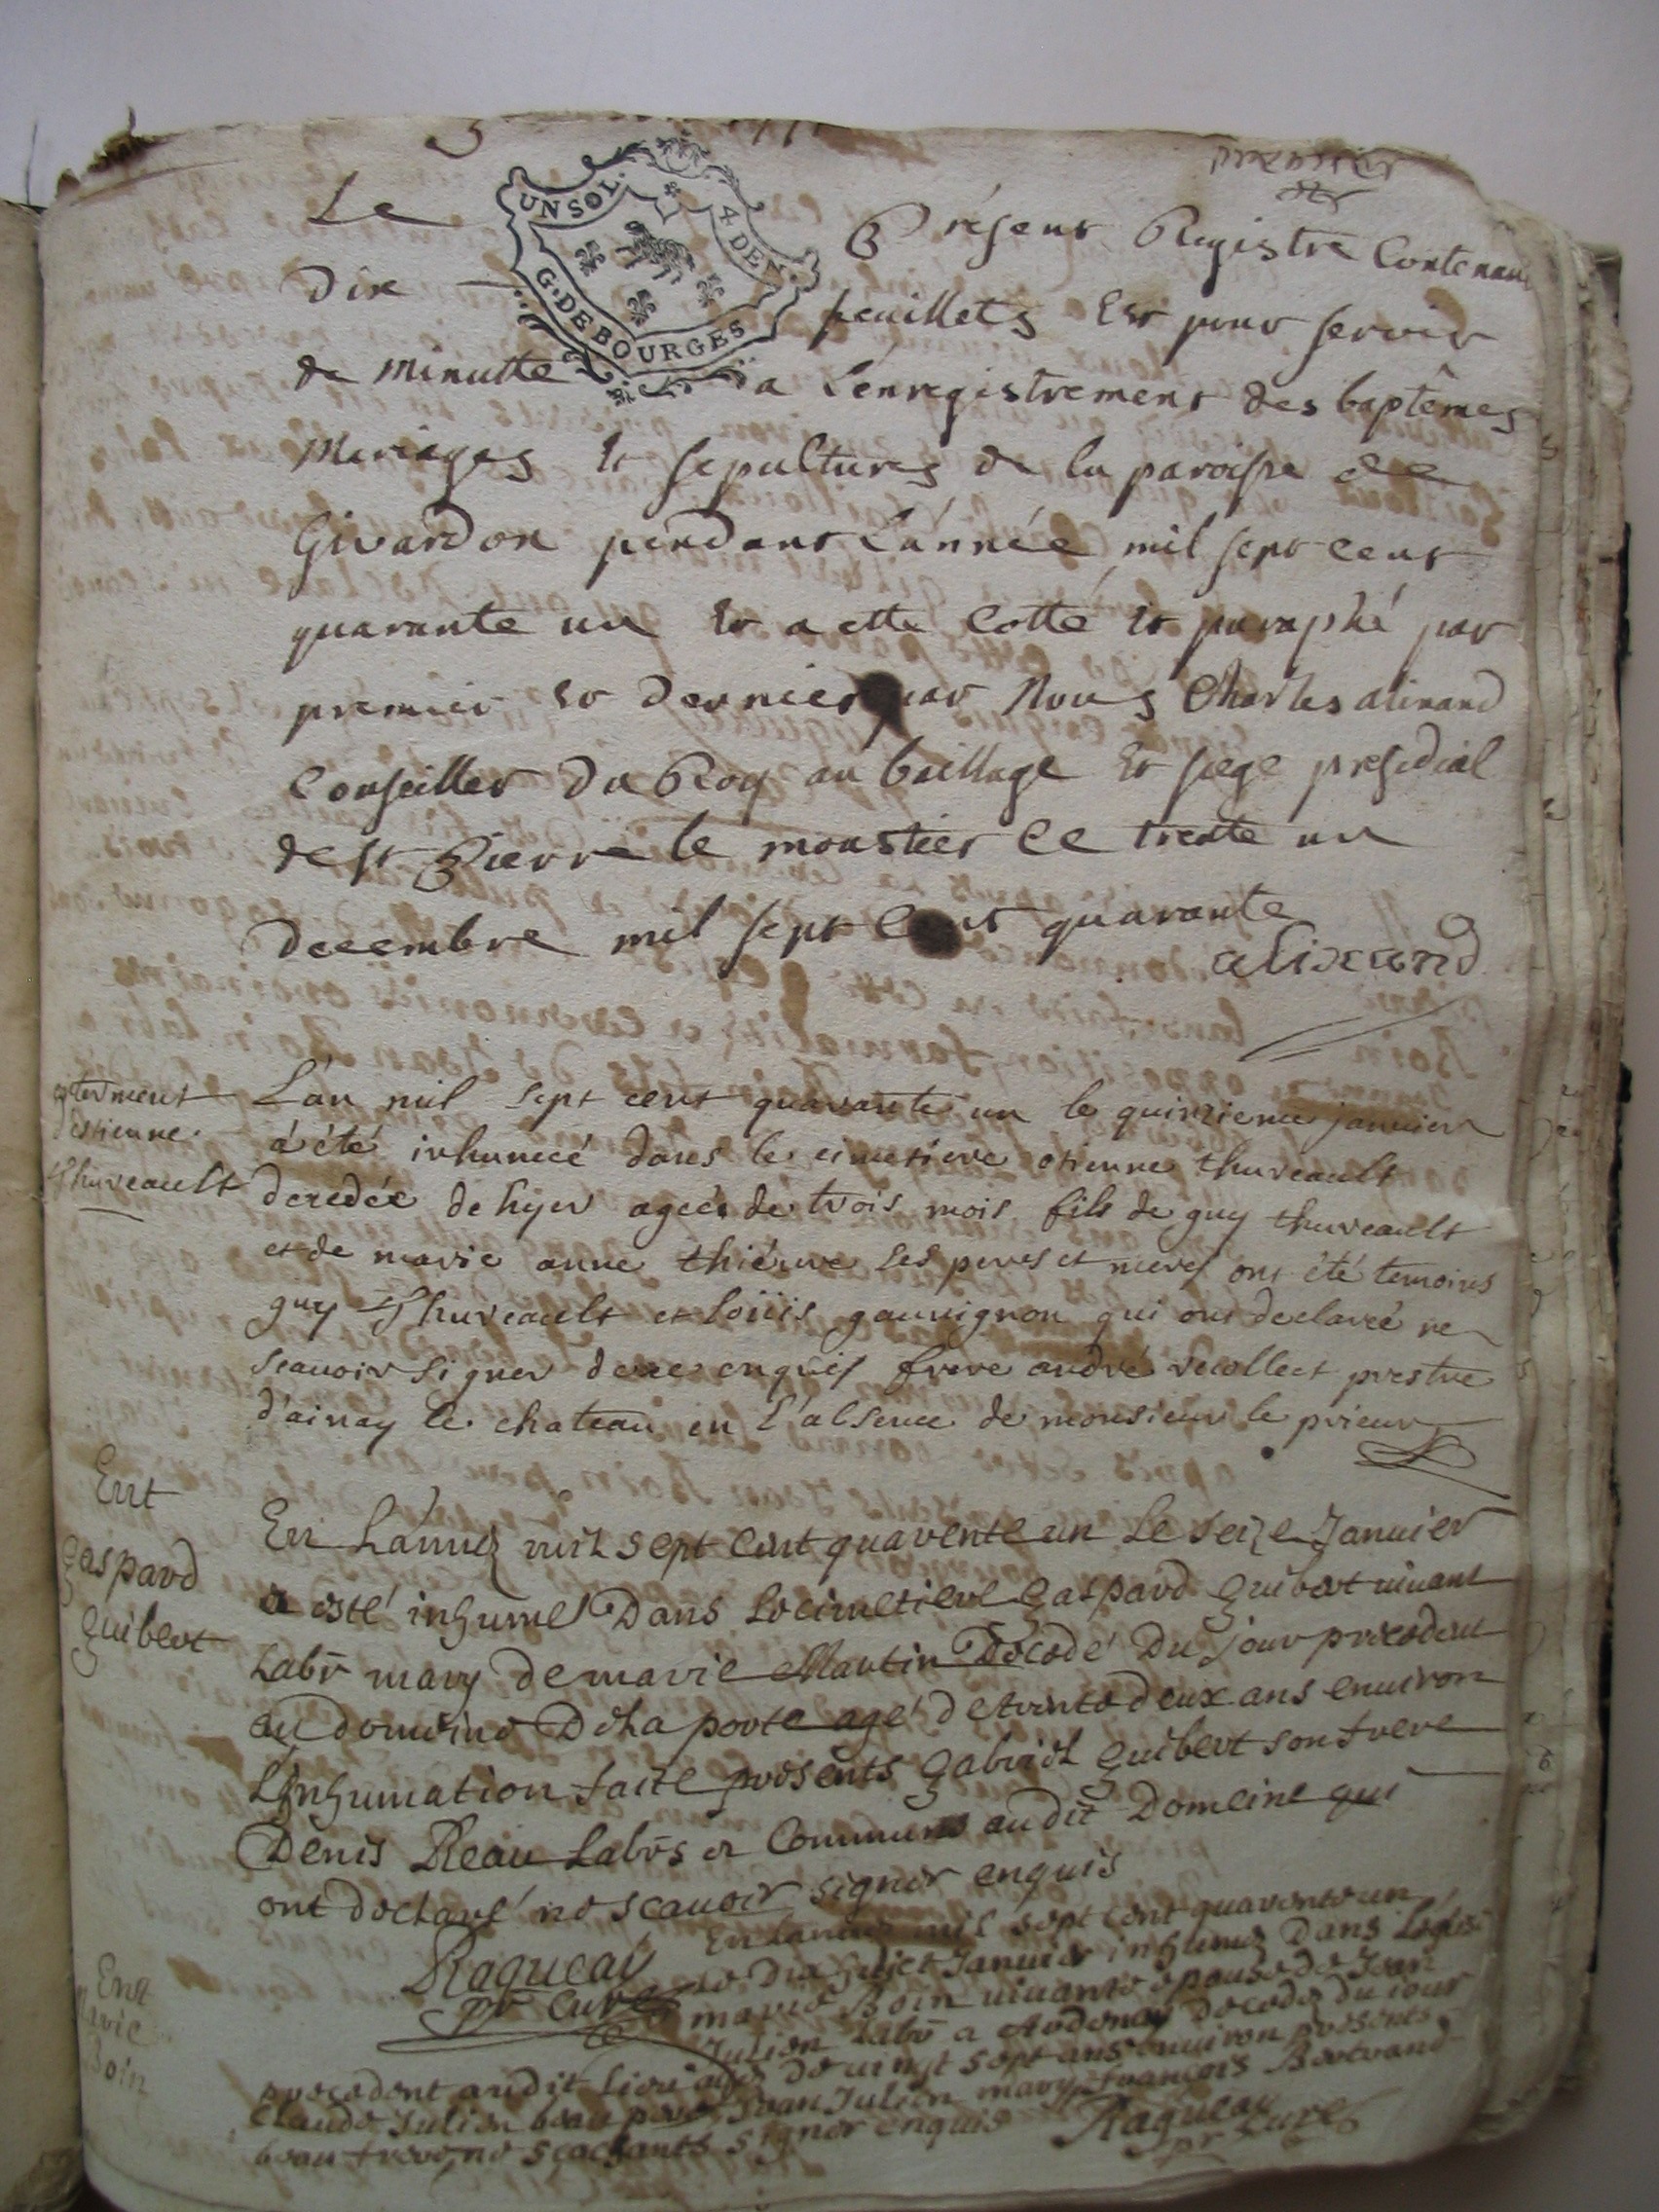 premier
UN SOL. 4 DEN.
G. DE BOURGES
Le Présent Registre Contenant
Dix feuillets Est pour servir
de minutte a L'enregistrement des baptêmes
Mariages Et sepultures de la paroisse de
Givardon pendant L'année mil sept cent
quarante un Et a ette Cotté Et paraphé par
premier Et dernier par Nous Charles alixand
Conseiller Du Roy au bailliage Et siege presidial
de st Pierre le moustier Ce trente un
decembre mil sept Cent quarante
alixand
enterment
d'estienne
thuveault
L'an mil sept cent quarante un le quinzieme janvier
a été inhumeé dans le cimetiere etienne thuveault
dexedée de hyer ageés de trois mois fils de guy thuveault
et de marie anne ses peres et meres ont été temoins
guy thuveault et loüis gauvignon qui ont declareé ne
scauoir signer de ce enquis frere andré recollect prestre
d'ainay le chateau en l'absence de monsieur le prieur
Ent
gaspard
guibert
En Lanneé mil sept cent quarente un Le seize Januier
a esté inhumé Dans Le cimetiere gaspard guibert uiuant
Labr mary de marie Martin Décédé Du jour precedent
au domeine De La porte agé de trente deux ans enuiron
L'Inhumation faite presents gabriel guibert son frere
Denis Reau Labrs et Communs audit Domeine qui
ont declaré ne scauoir signer enquis
Ragueau
pr curé
Ent
marie
Boin
En Lanneé mil sept cent quarente un
le Dix sept Januier inhumeé Dans Leglise
marie Boin uiuante epouse de Jean
Julien Labr a Ardenay decedeé du iour
precedent audit Lieu ageé de uingt sept ans enuiron presents
Claude Julien beau pere, Jean Julien mary, francois Bertrand
beau frere, ne scachants signer enquis
Ragueau
pr curé